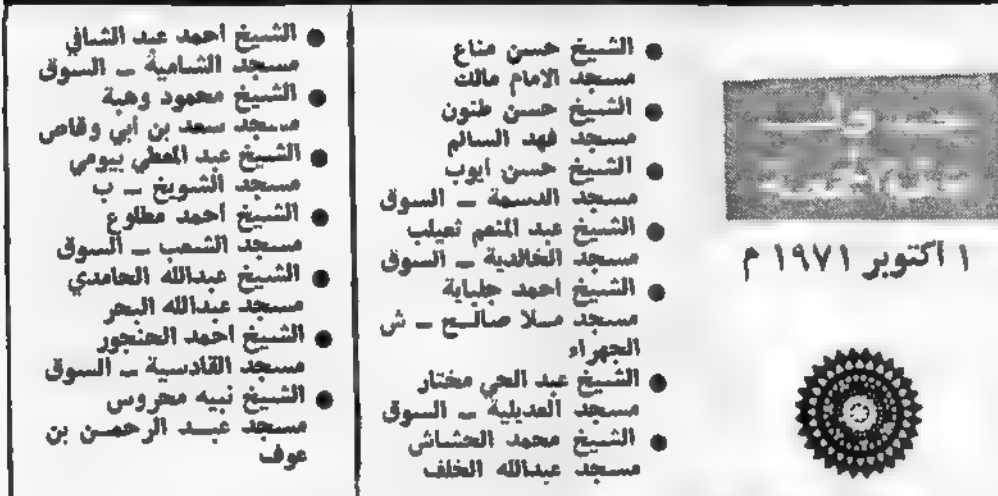 ١ اكتوبر ١٩٧١ م
● الشيخ حسن مناع
مسجد الامام مالك
● الشيخ حسن طنون
مسجد فهد السالم
● الشيخ حسن ايوب
مسجد الدسمة ــ السوق
● الشيخ عبد المنعم تعيلب
مسجد الخالدية ــ السوق
● الشيخ احمد جلباية
مسجد مسلا صالــح ــ ش
الجهراء
● الشيخ عبد الحي مختار
مسجد العديلية ــ السوق
● الشيخ محمد الحشاش
مسجد عبدالله الخلف
● الشيخ احمد عبد الشافي
مسجد الشامية ــ السوق
● الشيخ محمود وهبة
مسجد سعد بن أبي وقاص
● الشيخ عبد المعطي بيومي
مسجد الشويخ ــ ب
● الشيخ احمد مطاوع
مسجد الشعب ــ السوق
● الشيخ عبدالله الحامدي
مسجد عبدالله البحر
● الشيخ احمد الحنجور
مسجد القادسية ــ السوق
● الشيخ نبيه محروس
مسجد عبــد الرحمــن بن
عوف